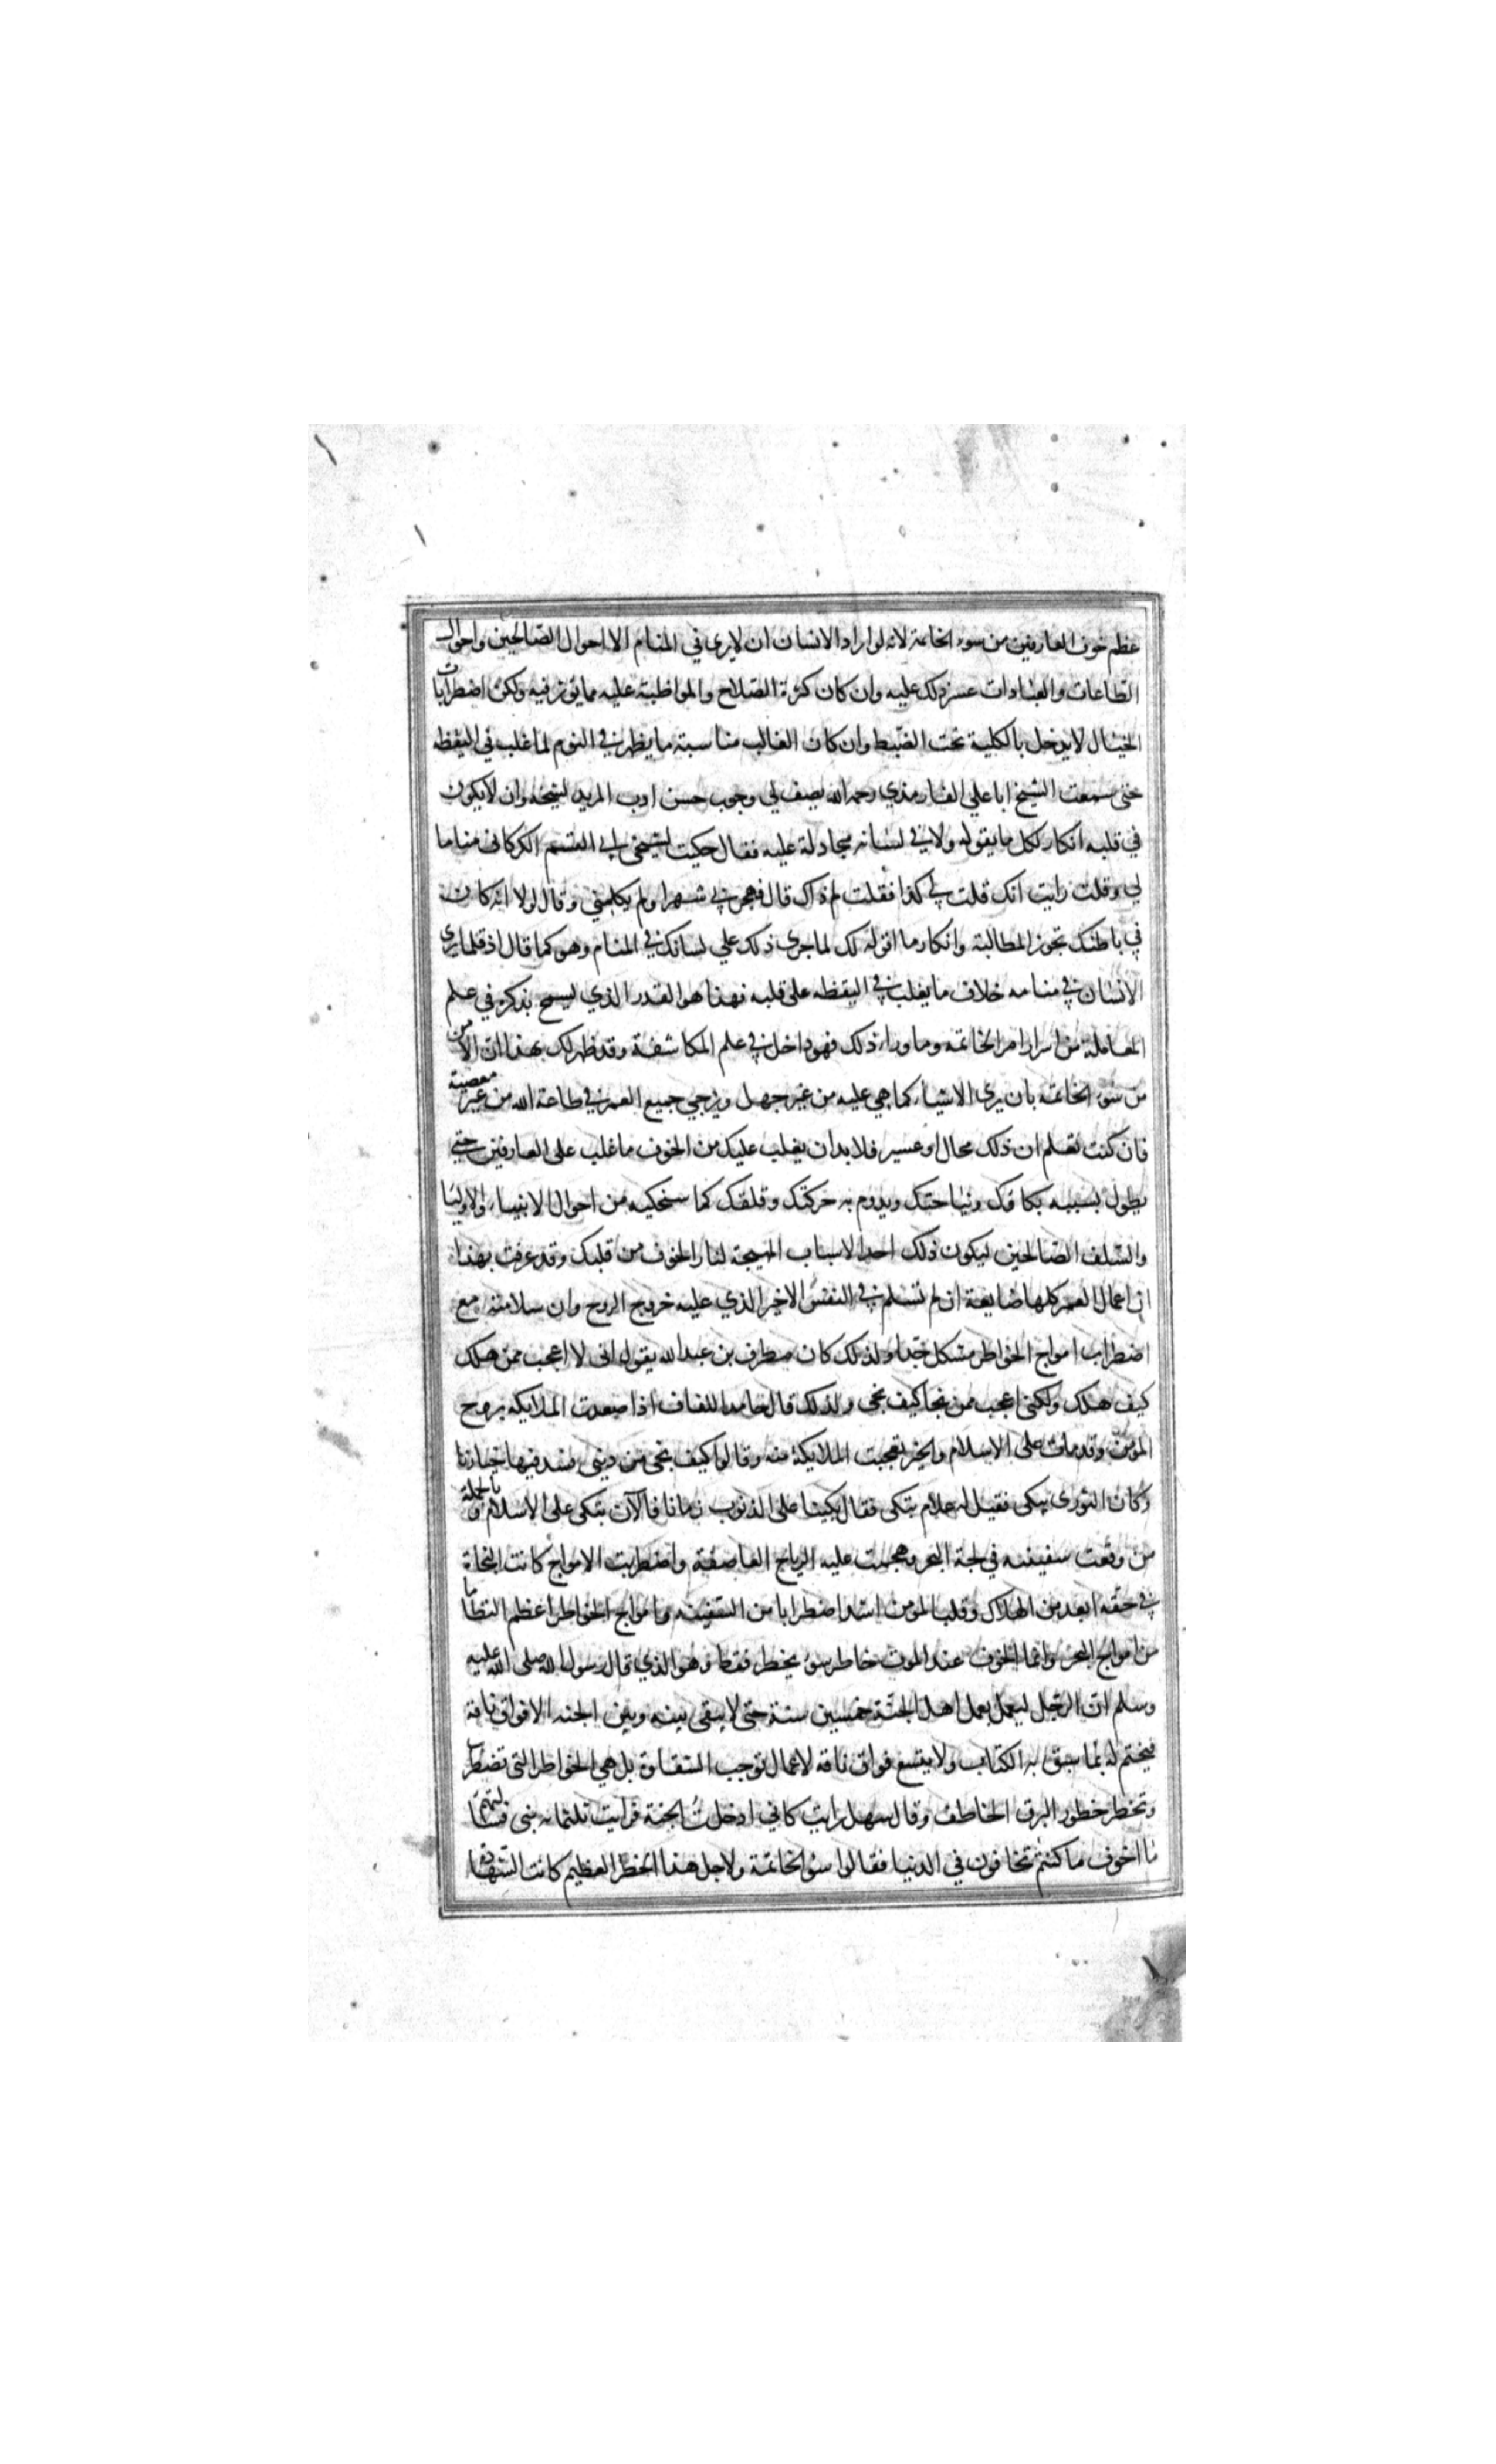 عظم خوف العارفين من سوء الخاتمة لانه لو اراد الانسان ان لا يرى في المنام الا احوال الصالحين واحوال
الطاعات والعبادات عسر ذلك عليه وان كان كثرة الصلاح والمواظبة عليه مما يوثر فيه ولكن اضطرابات
الخيال لا يدخل بالكلية تحت الضبط وان كان الغالب مناسبة ما يظهر في النوم لما غلب في اليقظه
حتى سمعت الشيخ ابا علي الفارمذي رحمه الله يصف لي وجوب حسن ادب المريد لشيخه وان لا يكون
في قلبه انكار لكل ما يقوله ولا في لسانه مجادلة عليه فقال حكيت لشيخي ابي القسم الكركانى مناما
لي وقلت رايت انك قلت لي كذا فقلت لم ذاك قال فهجرني شهرا ولم يكلمني وقال لولا انه كان
في باطنك تجوز المطالبة وانكار ما اقوله لك لما جرى ذلك علي لسانك في المنام وهو كما قال اذ قلما يرى
الانسان في منامه خلاف ما يغلب في اليقظه على قلبه فهذا هو القدر الذي نسمح بذكره في علم
المعاملة من اسرار امر الخاتمه وما وراء ذلك فهو داخل في علم المكاشفة وقد ظهر لك بهذا ان الامن
من سوء الخاتمه بان يرى الاشياء كما هي عليه من غير جهل ويزجي جميع العمر في طاعة الله من غير معصية
فان كنت تعلم ان ذلك محال او عسير فلا بد ان يغلب عليك من الخوف ما غلب على العارفين حتى
يطول بسببه بكاؤك ونياحتك ويدوم به حركتك وقلقك كما سنحكيه من احوال الانبياء والاوليا
والسلف الصالحين ليكون ذلك احد الاسباب المهيجة لنار الخوف من قلبك وقد عرفت بهذا
ان اعمال العمر كلها ضايعة ان لم تسلم في النفس الاخير الذي عليه خروج الروح وان سلامته مع
اضطراب امواج الخواطر مشكل جدا ولذلك كان مطرف بن عبد الله يقول انى لا اعجب ممن هلك
كيف هلك ولكنى اعجب ممن نجا كيف نجى ولذلك قال حامد اللفاف اذا صعدت الملايكه بروح
المؤمن وقد مات على الاسلام والخير تعجبت الملايكة منه وقالوا كيف نجى من دنيى فسد فيها خيارنا
وكان الثورى يبكى فقيل له علام تبكى فقال بكينا على الذنوب زمانا فالآن نبكى على الاسلام وبالجملة
من وقعت سفينته في لجة البحر وهجمت عليه الرياح العاصفة واضطربت الامواج كانت النجاة
في حقه ابعد من الهلاك وقلب المومن اشد اضطرابا من السفينه وامواج الخواطر اعظم التطاما
من امواج البحر وانما الخوف عند الموت خاطر سوء يخطر فقط وهو الذي قال رسول الله صلى الله عليه
وسلم ان الرجل ليعمل بعمل اهل الجنة خمسين سنة حتى لا يبقى بينه وبين الجنه الا فواق ناقة
فيختم له بما سبق به الكتاب ولا يتسع فواق ناقه لاعمال توجب الشقاوة بل هي الخواطر التى تضطرب
وتخطر خطور البرق الخاطف وقال سهل رايت كاني ادخلت الجنة فرايت ثلثمايه نبى فسالتهم
ما اخوف ما كنتم تخافون في الدنيا فقالوا سوء الخاتمة ولاجل هذا الخطر العظيم كانت الشهادة